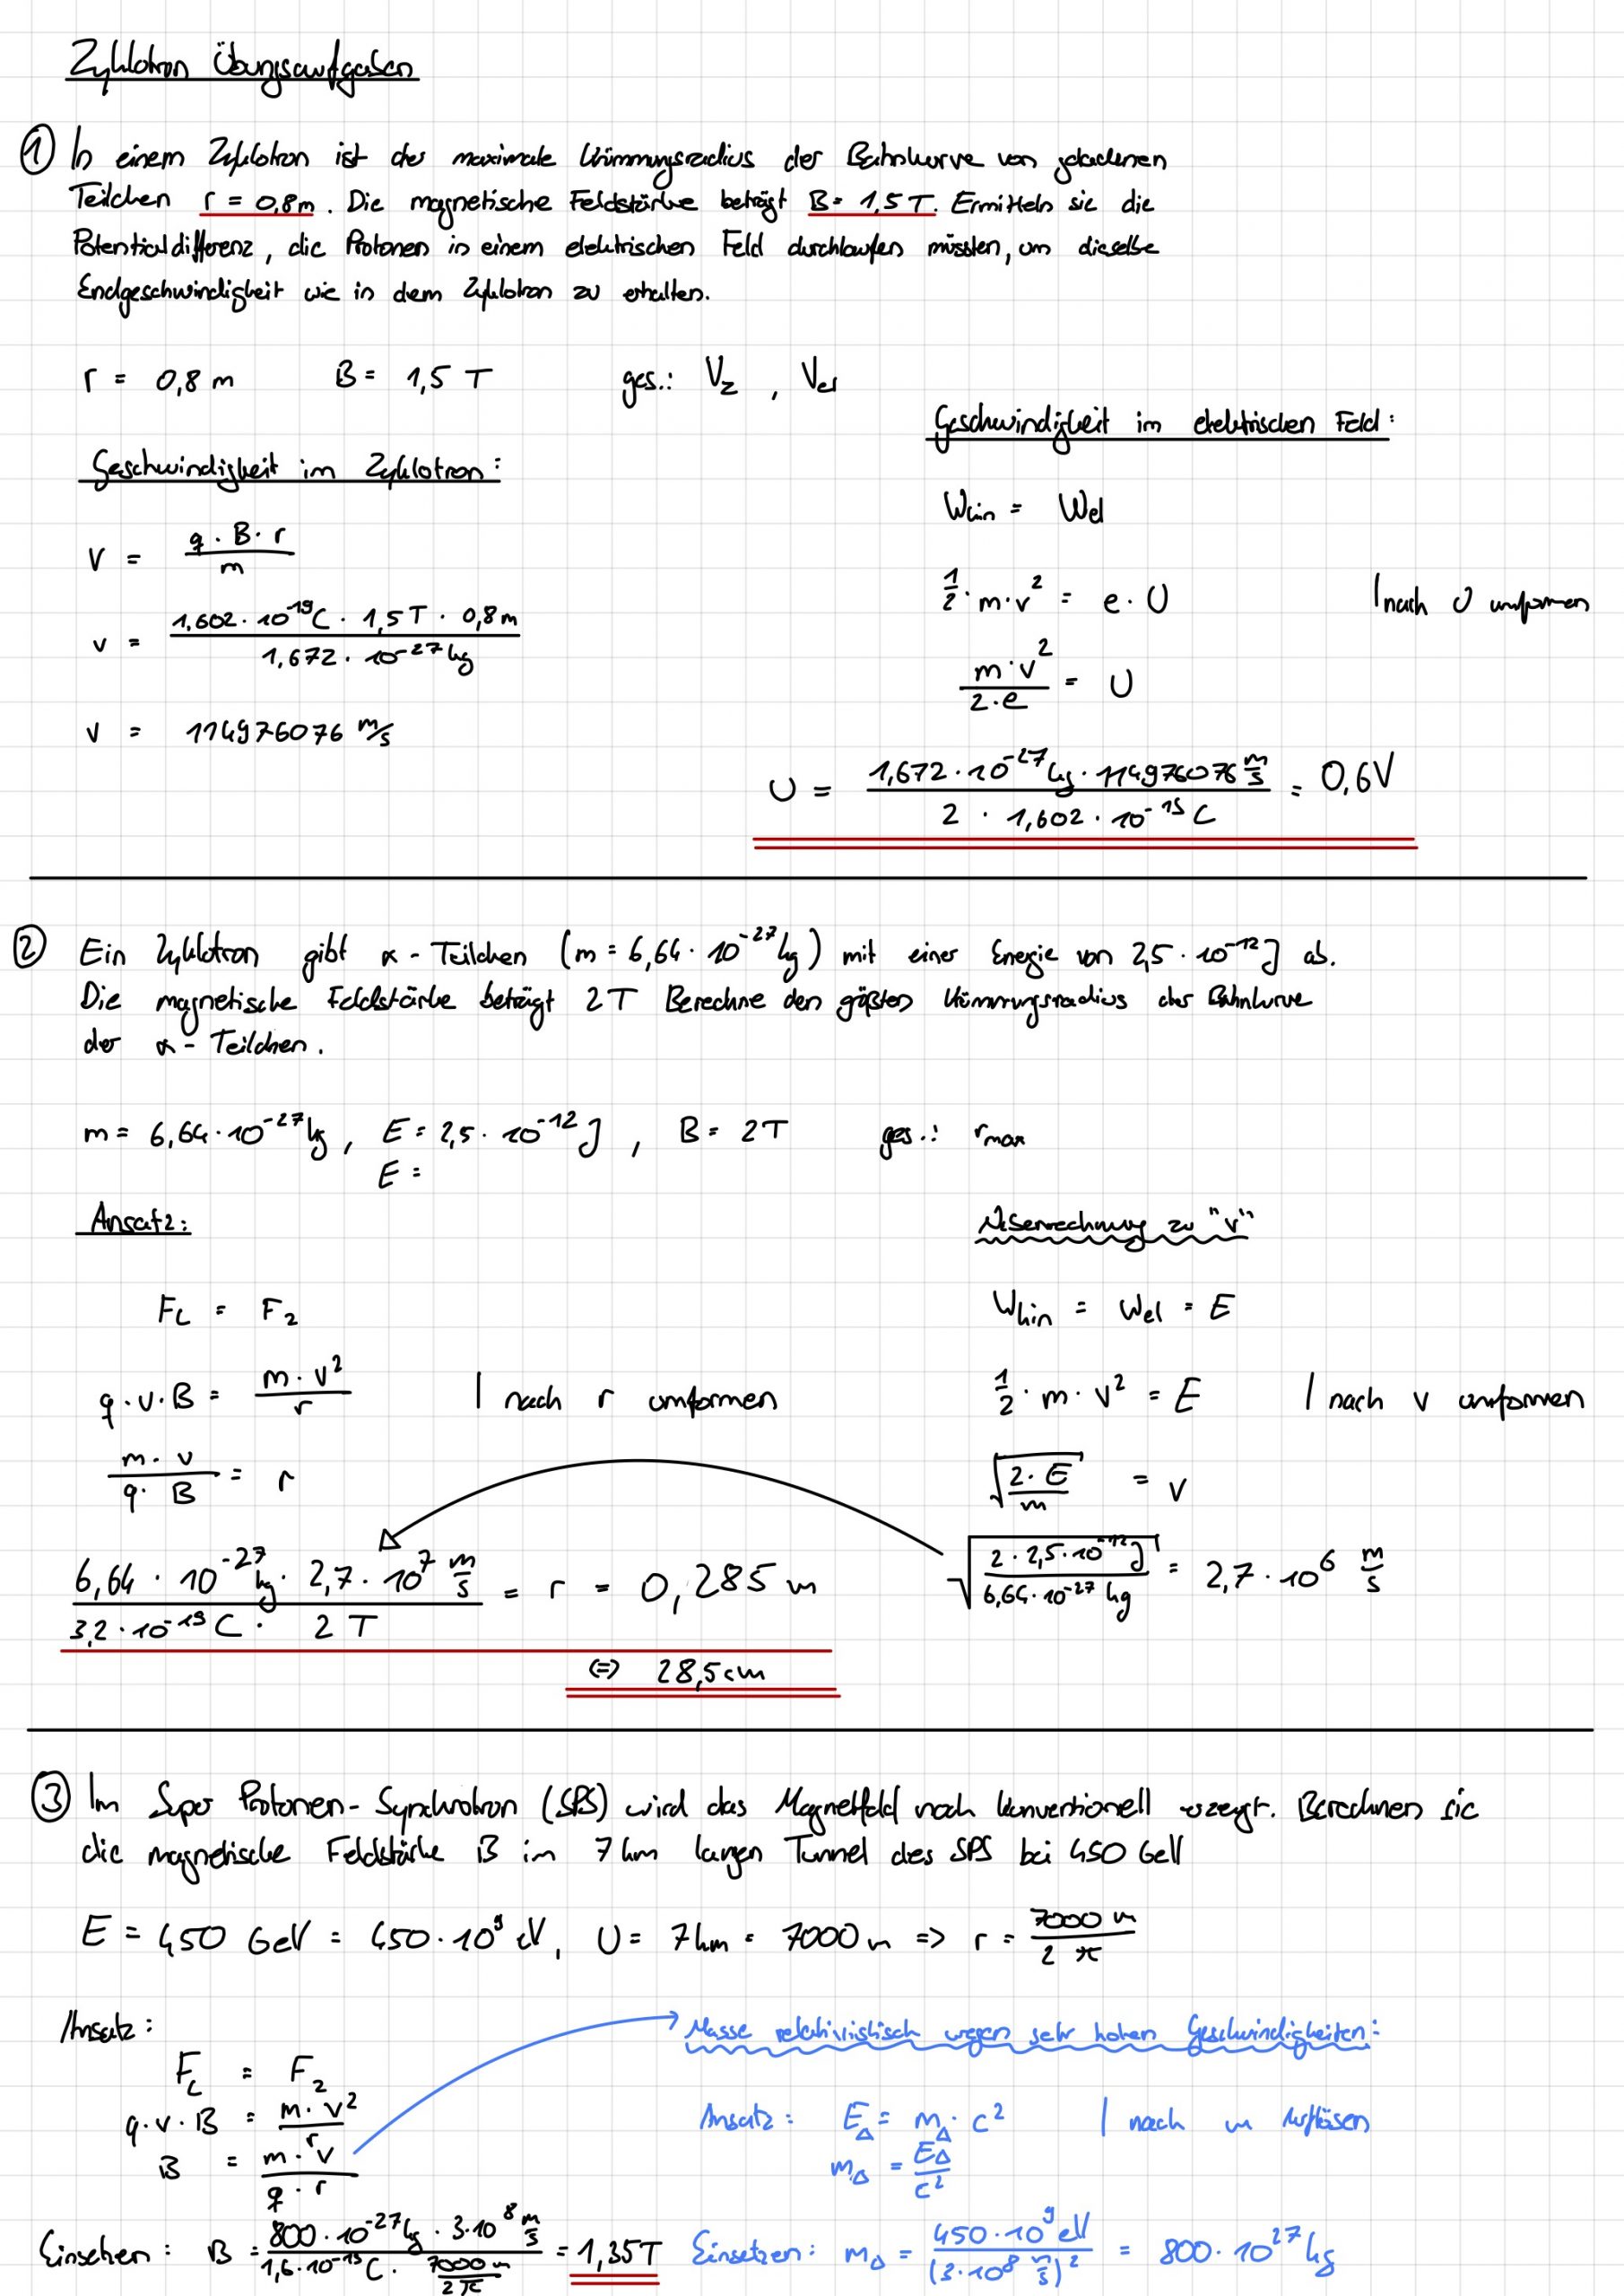 Zyklotron Übungsaufgaben
① In einem Zyklotron ist der maximale Krümmungsradius der Bahnkurve von geladenen
Teilchen r = 0,8m. Die magnetische Feldstärke beträgt B = 1,5 T. Ermitteln sie die
Potentialdifferenz, die Protonen in einem elektrischen Feld durchlaufen müssten, um dieselbe
Endgeschwindigkeit wie in dem Zyklotron zu erhalten.
r = 0,8 m B = 1,5 T ges.: V_z , V_el
Geschwindigkeit im Zyklotron:
v = (q · B · r) / m
v = (1,602 · 10^-19 C · 1,5 T · 0,8 m) / (1,672 · 10^-27 kg)
v = 114976076 m/s
Geschwindigkeit im elektrischen Feld:
W_kin = W_el
1/2 · m · v² = e · U | nach U umformen
(m · v²) / (2 · e) = U
U = (1,672 · 10^-27 kg · 114976076 m/s) / (2 · 1,602 · 10^-19 C) = 0,6 V
② Ein Zyklotron gibt α - Teilchen (m = 6,64 · 10^-27 kg) mit einer Energie von 2,5 · 10^-12 J ab.
Die magnetische Feldstärke beträgt 2 T Berechne den größten Krümmungsradius der Bahnkurve
der α - Teilchen.
m = 6,64 · 10^-27 kg, E = 2,5 · 10^-12 J, B = 2 T ges.: r_max
E =
Ansatz:
F_L = F_Z
q · v · B = (m · v²) / r | nach r umformen
(m · v) / (q · B) = r
(6,64 · 10^-27 kg · 2,7 · 10^7 m/s) / (3,2 · 10^-19 C · 2 T) = r = 0,285 m
⇔ 28,5 cm
Nebenrechnung zu "v"
W_kin = W_el = E
1/2 · m · v² = E | nach v umformen
√((2 · E) / m) = v
√((2 · 2,5 · 10^-12 J) / (6,64 · 10^-27 kg)) = 2,7 · 10^6 m/s
③ Im Super Protonen-Synchrotron (SPS) wird das Magnetfeld noch konventionell erzeugt. Berechnen sie
die magnetische Feldstärke B im 7 km langen Tunnel des SPS bei 450 GeV
E = 450 GeV = 450 · 10^9 eV, U = 7 km = 7000 m => r = 7000 m / (2 π)
Ansatz:
F_L = F_Z
q · v · B = (m · v²) / r
B = (m · v) / (q · r)
Einsetzen: B = (800 · 10^-27 kg · 3 · 10^8 m/s) / (1,6 · 10^-19 C · 7000 m / (2 π)) = 1,35 T
Masse relativistisch wegen sehr hohen Geschwindigkeiten:
Ansatz: E_Δ = m_Δ · c² | nach m Auflösen
m_Δ = E_Δ / c²
Einsetzen: m_Δ = (450 · 10^9 eV) / (3 · 10^8 m/s)² = 800 · 10^27 kg